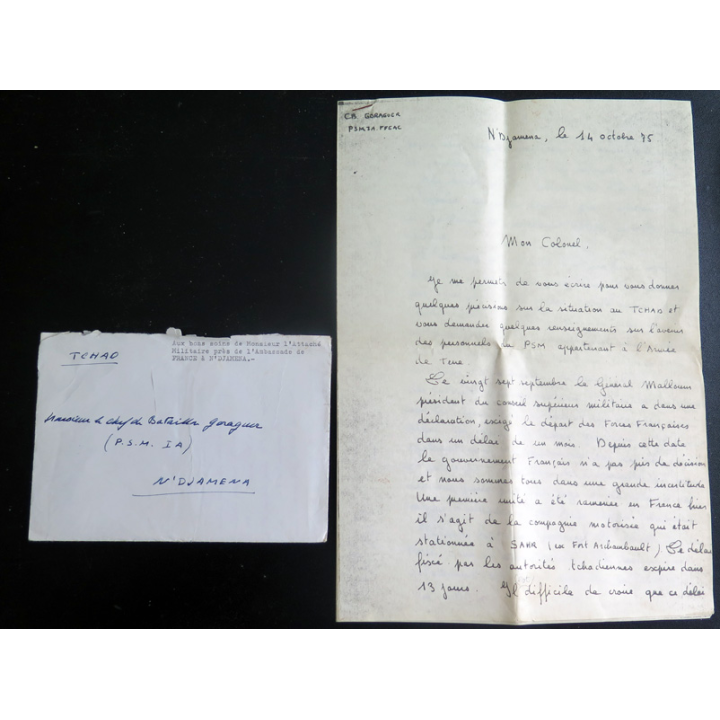 TCHAD
Aux bons soins de Monsieur l'Attaché
Militaire près de l'Ambassade de
FRANCE à N'DJAMENA.-
Monsieur le chef de Bataillon Goraguer
(P.S.M. IA)
N'DJAMENA
C.B. GORAGUER
N'Djamena, le 14 octobre 75
Mon Colonel,
Je me permets de vous écrire pour vous donner
quelques précisions sur la situation au TCHAD et
vous demander quelques renseignements sur l'avenir
des personnels du PSM appartenant à l'Armée
de Terre.
Le vingt sept septembre le Général Malloum
président du conseil supérieur militaire a dans une
déclaration, exigé le départ des Forces Françaises
dans un délai de un mois. Depuis cette date
le gouvernement Français n'a pas pris de décision
et nous sommes tous dans une grande incertitude
Une première unité a été ramenée en France hier
il s'agit de la compagnie motorisée qui était
stationnée à SAHR (ex Fort Archambault) Le délai
fixé par les autorités tchadiennes expire dans
13 jours. Il difficile de croire que ce délai